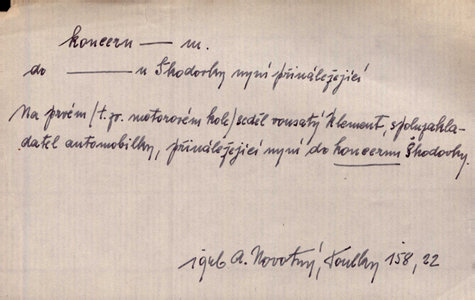 koncern — m.
do ——— u Škodovky nyní přináležející
Na prvém /t. zv. motorovém kole/ seděl vousatý Klement, spoluzakla-
datel automobilky, přináležející nyní do koncernu Škodovky.
A. Novotný, Toulky 158, 22